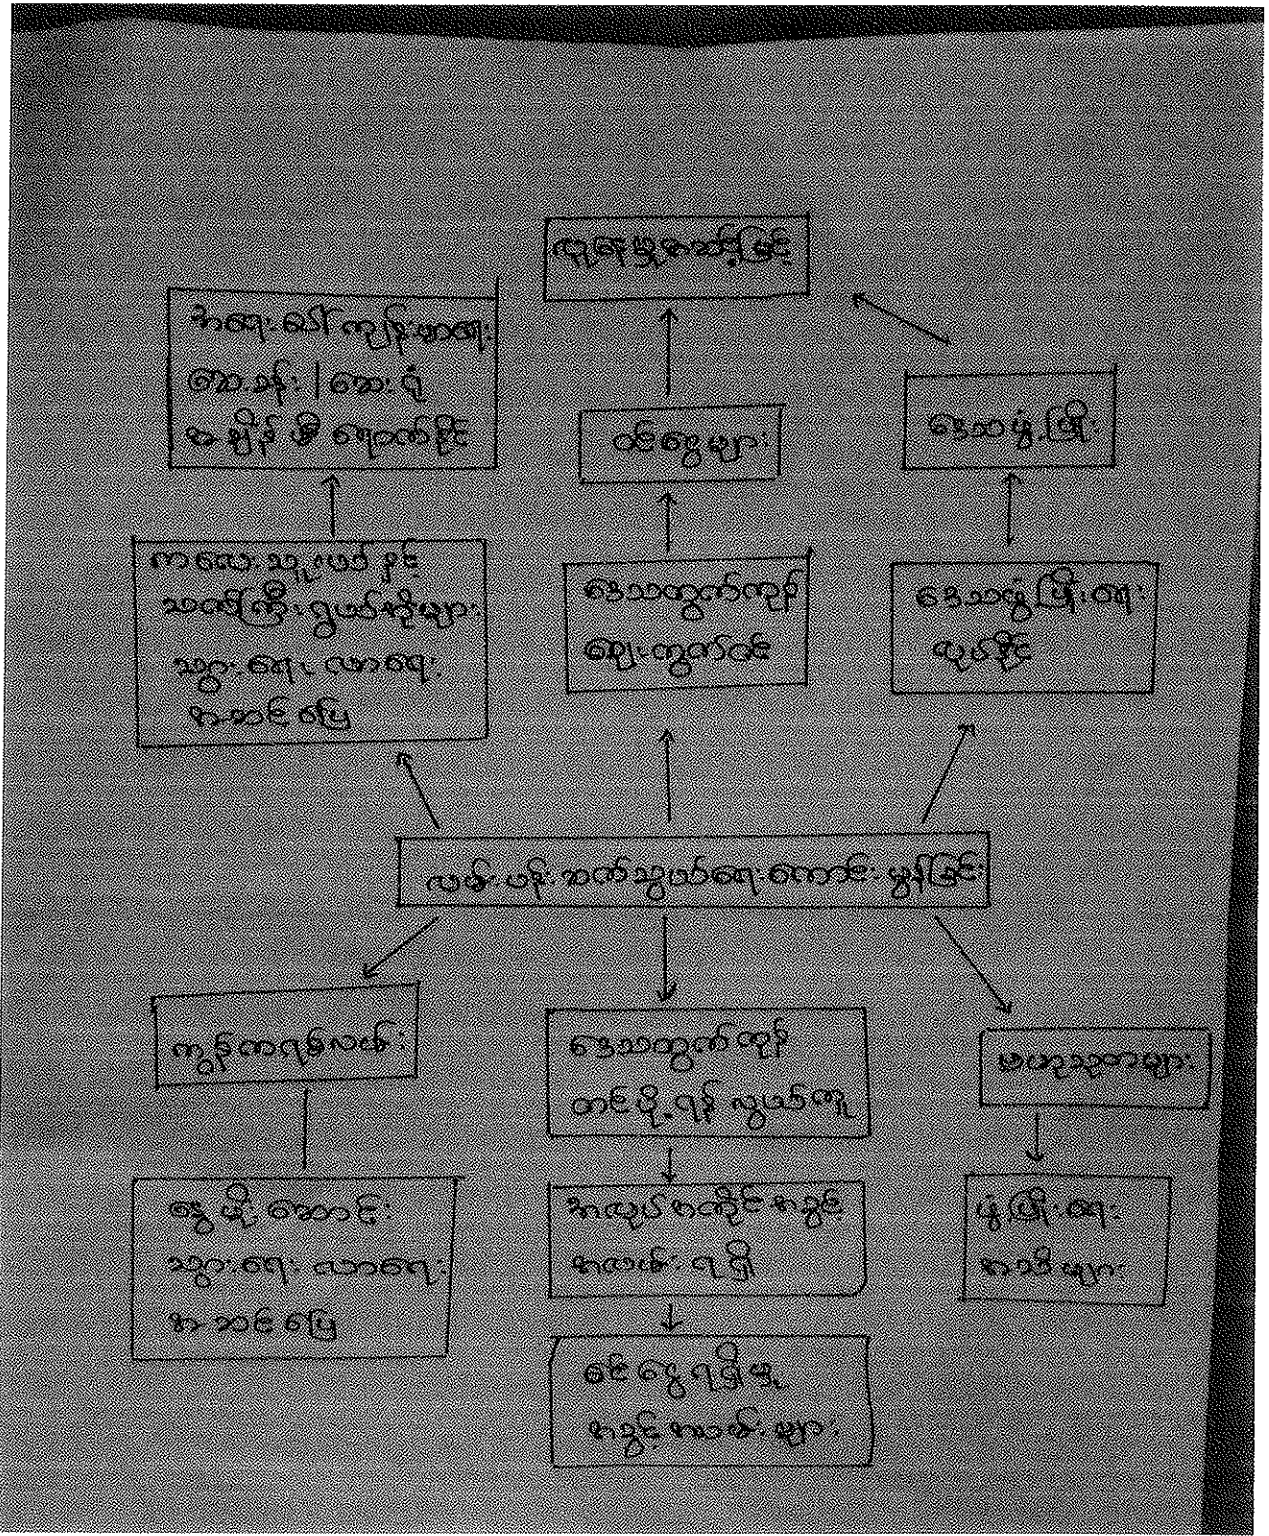 လူနေမှုအဆင့်မြင့်
အရေးပေါ် ကျန်းမာရေး
ဆေးခန်း | ဆေးရုံ
အချိန်မီ ရောက်နိုင်
ဝင်ငွေများ
ဒေသဖွံ့ဖြိုး
ကလေးသူငယ် နှင့်
သက်ကြီးရွယ်အိုများ
သွားရေး လာရေး
အဆင်ပြေ
ဒေသထွက်ကုန်
ဈေးကွက်ဝင်
ဒေသဖွံ့ဖြိုးရေး
လုပ်နိုင်
လမ်းပန်းဆက်သွယ်ရေးကောင်းမွန်ခြင်း
ကွန်ကရစ်လမ်း
ဒေသထွက်ကုန်
တင်ပို့ရန် လွယ်ကူ
ဗဟုသုတများ
နွေ မိုး ဆောင်း
သွားရေး လာရေး
အဆင်ပြေ
အလုပ်အကိုင်အခွင့်
အလမ်း ရရှိ
ဖွံ့ဖြိုးရေး
အသိများ
ဝင်ငွေရရှိမှု
အခွင့်အလမ်းများ